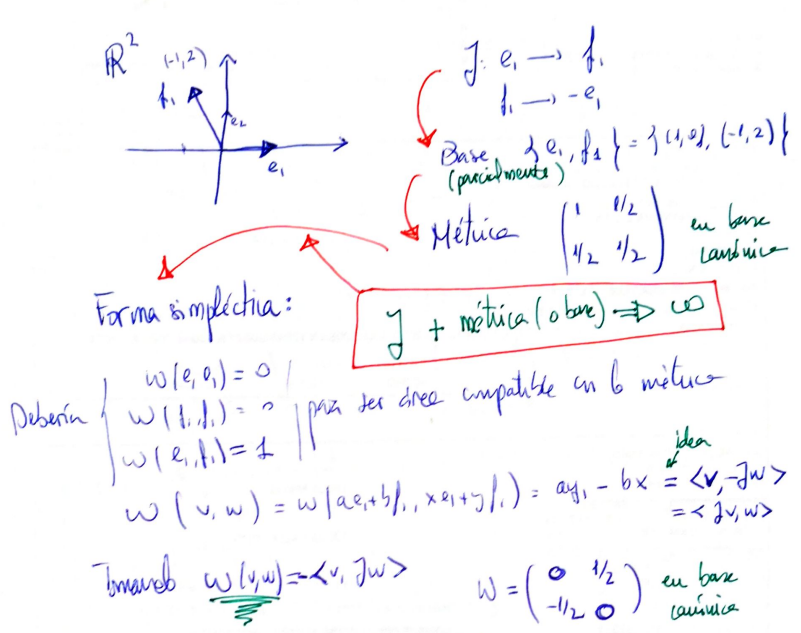 ℝ²
(-1,2)
f₁
e₂
e₁
J: e₁ → f₁
f₁ → -e₁
Base {e₁, f₁} = {(1,0), (-1,2)}
(parcialmente)
Métrica (1 1/2
1/2 1/2) en base canónica
Forma simpléctica:
J + métrica (o base) ⇒ ω
Debería
ω(e₁,e₁) = 0
ω(f₁,f₁) = 0
ω(e₁,f₁) = 1
para ser área compatible con la métrica
idea
ω(v,w) = ω(ae₁+bf₁, xe₁+yf₁) = ay₁ - bx = <v,-Jw>
= <Jv,w>
Tomando ω(v,w) = -<v, Jw>
W = (0 1/2
-1/2 0) en base canónica